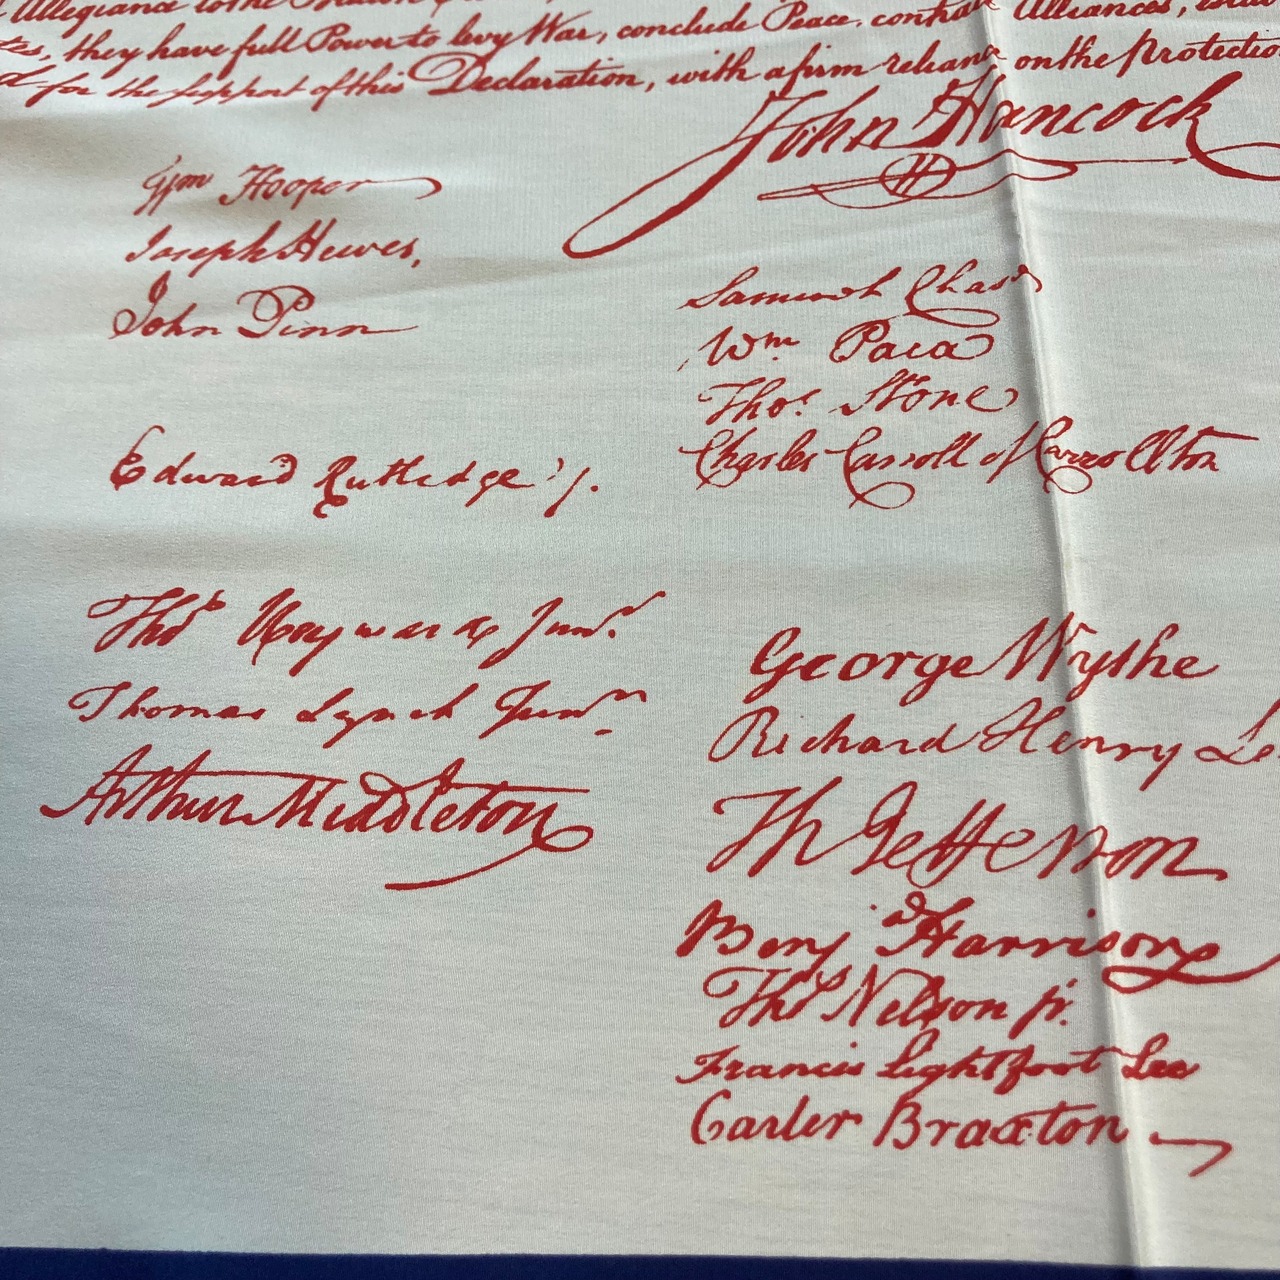 Allegiance to the
they have full Power to levy War, conclude Peace, contract Alliances,
for the support of this Declaration, with a firm reliance on the Protection
John Hancock
Wm Hooper
Joseph Hewes,
John Penn
Edward Rutledge /.
Thos Heyward Junr.
Thomas Lynch Junr.
Arthur Middleton
Samuel Chase
Wm. Paca
Thos. Stone
Charles Carroll of Carrollton
George Wythe
Richard Henry Le
Th Jefferson
Benj Harrison
Thos Nelson jr.
Francis Lightfoot Lee
Carter Braxton